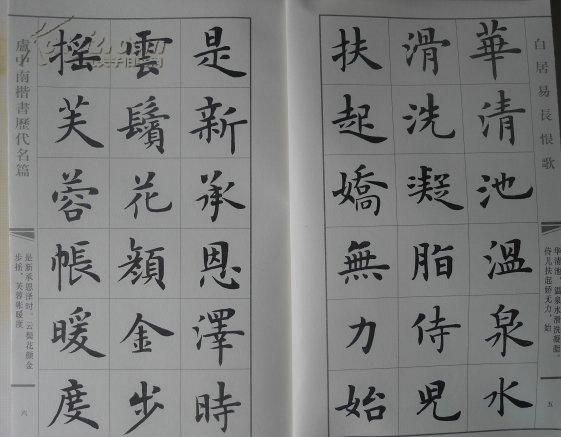 白居易長恨歌
华清池，温泉水滑洗凝脂。
侍儿扶起娇无力，始
五
華清池溫泉水
滑洗凝脂侍兒
扶起嬌無力始
是新承恩澤時
雲鬢花顏金步
搖芙蓉帳暖度
盧中南楷書歷代名篇
是新承恩泽时。云鬓花颜金
步摇，芙蓉帐暖度
六